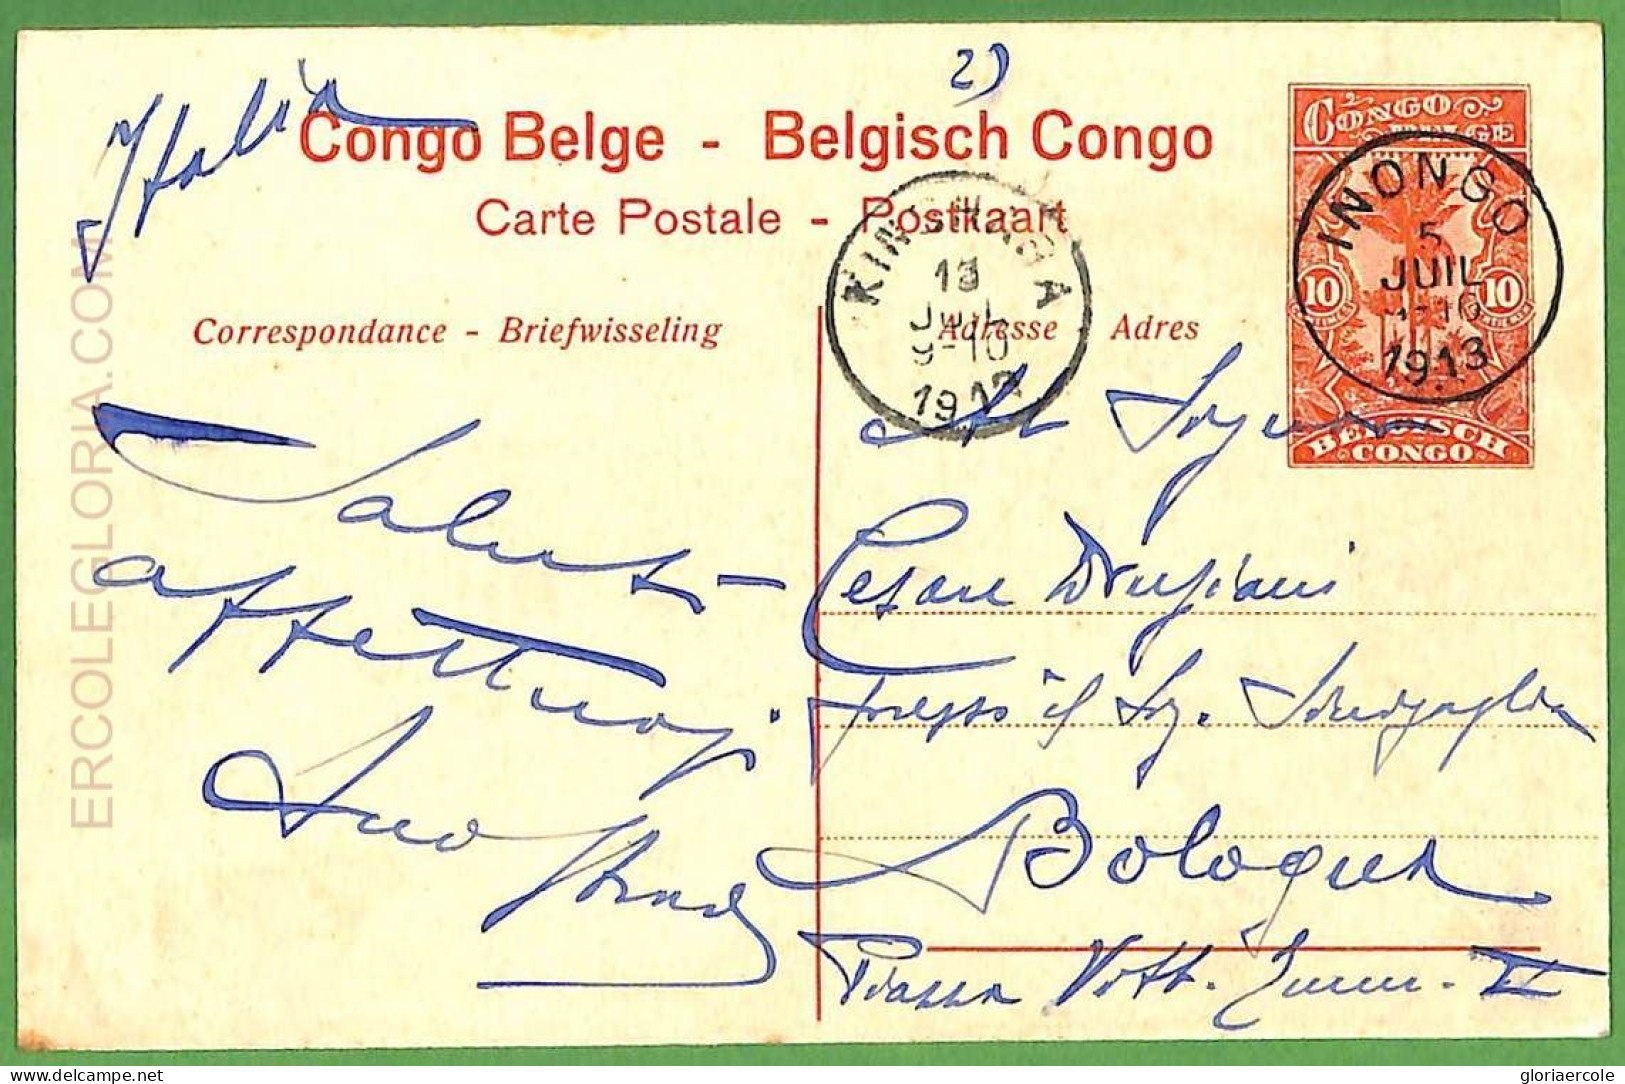 2)
Italia
Congo Belge - Belgisch Congo
Carte Postale - Postkaart
CONGO BELGE
INONGO
5
JUIL
1913
10 10
BELGISCH CONGO
KINSHASA
13
JUIL
9-10
1913
Correspondance - Briefwisseling
Adresse - Adres
Saluti
affettuosi.
Suo
Al Signor
Cesare Drusiani
presso il Sig.
Bologna
Piazza Vitt. Emm. II
ERCOLEGLORIA.COM
delcampe.net
gloriaercole